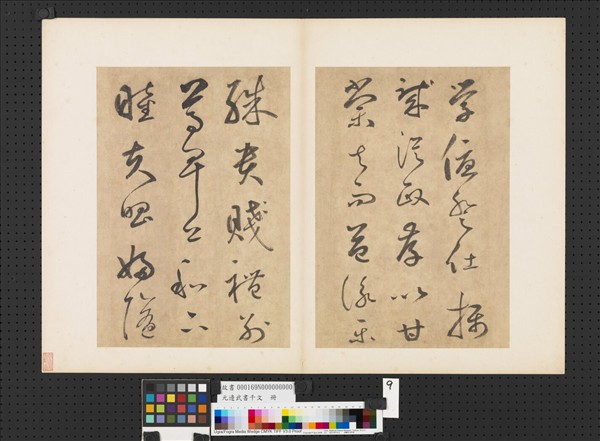 學優登仕攝
職從政存以甘
棠去而益詠樂
殊貴賤禮別
尊卑上和下
睦夫唱婦隨
故書 000169N000000000
元邊武書千文 冊
9